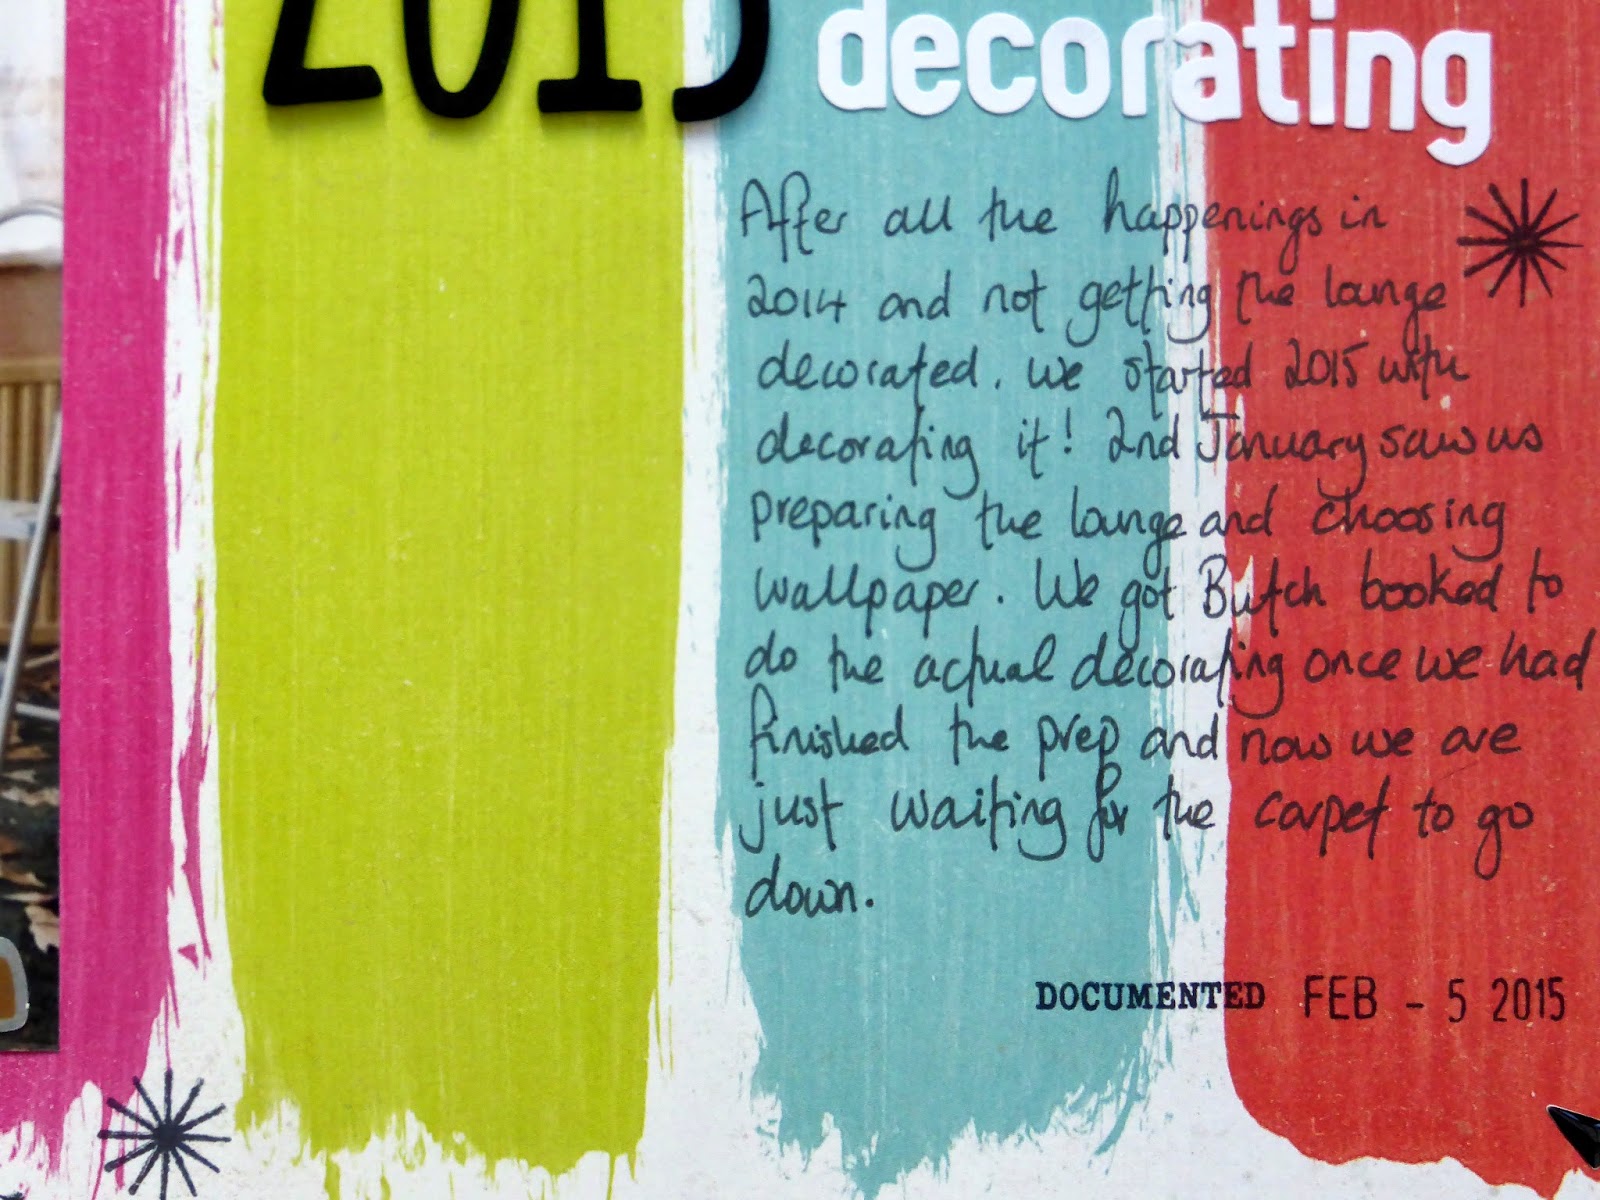 2015 decorating
After all the happenings in
2014 and not getting the lounge
decorated. we started 2015 with
decorating it! 2nd January saw us
preparing the lounge and choosing
wallpaper. We got Butch booked to
do the actual decorating once we had
finished the prep and now we are
just waiting for the carpet to go
down.
DOCUMENTED FEB - 5 2015